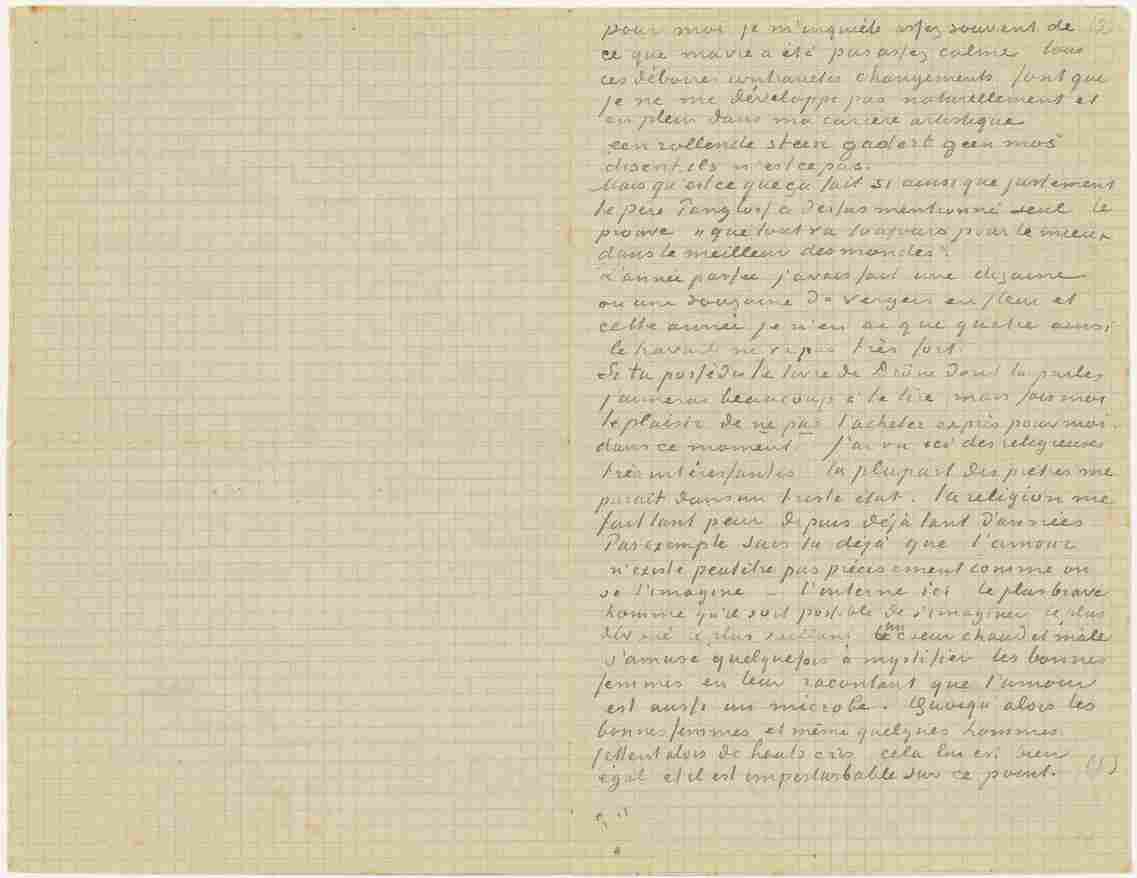 pour moi je m'inquiète assez souvent de (3)
ce que ma vie a été pas assez calme tous
ces déboires contrariétés changements font que
je ne me développe pas naturellement et
en plein dans ma carriere artistique
een rollende steen gadert geen mos
disent ils n'est ce pas.
Mais qu'est ce que ça fait si ainsi que justement
le pere Panglosse dessus mentionné seul le
prouve "que tout va toujours pour le mieux
dans le meilleur des mondes".
L'année passée j'avais fait une dizaine
ou une douzaine de vergers en fleur et
cette année je n'en ai que quatre ainsi
le travail ne va pas très fort.
Si tu possèdes le livre de Drône dont tu parles
j'aimerais beaucoup à le lire mais fais moi
le plaisir de ne pas l'acheter exprès pour moi
dans ce moment. J'ai vu ici des religieuses
très intéressantes la plupart des prêtres me
parait dans un triste état. la religion me
fait tant peur depuis déjà tant d'années
Par exemple sais tu déjà que l'amour
n'existe peutêtre pas précisement comme on
se l'imagine – l'interne ici le plus brave
homme qu'il soit possible de s'imaginer le plus
dévoué le plus vaillant un coeur chaud et mâle
s'amuse quelquefois à mystifier les bonnes
femmes en leur racontant que l'amour
est aussi un microbe. Quoiqu'alors les
bonnes femmes et même quelques hommes
jettent alors de hauts cris cela lui est bien
égal et il est imperturbable sur ce point. (5)